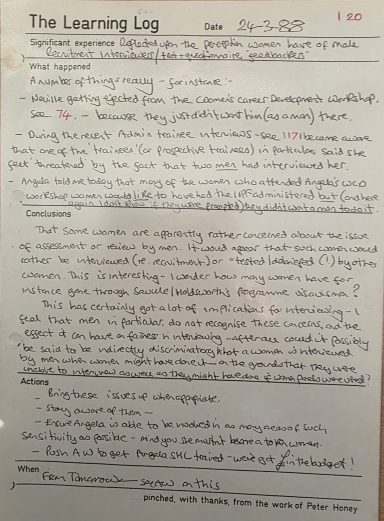 120
The Learning Log Date 24-3-88
Significant experience Reflected upon the perception women have of male
recruitment interviewers/test + questionnaire 'feedbackers'
What happened
A number of things really - for instance:-
- Neville getting ejected from the Women's Career Development Workshop,
see 74. - because they just didn't want him (as a man) there.
- During the recent Admin trainee interviews - see 117 I became aware
that one of the 'trainees' (or prospective trainees) in particular, said she
felt 'threatened' by the fact that two men had interviewed her.
- Angela told me today that many of the women who attended Angela's WCD
workshop women would like to have had the administered but (and here
again I don't know if they were prompted) they didn't want a man to do it.
Conclusions
That some women are apparently rather concerned about the issue
of assessment or review by men. It would appear that such women would
rather be interviewed (re. recruitment) or "tested/debriefed (!) by other
women. This is interesting - I wonder how many women have for
instance gone through Saville/Holdsworth's programme vis a vis men?
This has certainly got a lot of implications for interviewing - I
feel that men in particular do not recognise these concerns, and the
effect it can have on fairness in interviewing - after all could it possibly
be said to be indirectly discriminatory that a woman is interviewed
by men when women might have done it - on the grounds that they were
unable to interview as well as they might have done if women were used?
Actions
- Bring these issues up when appropriate.
- Stay aware of them -
- Ensure Angela is able to be involved in as many areas of such
sensitivity as possible - mind you she mustn't become a token woman.
- Push AW to get Angela SHL trained - we've got £ in the budget!
When
From Tomorrow - on this
....pinched, with thanks, from the work of Peter Honey